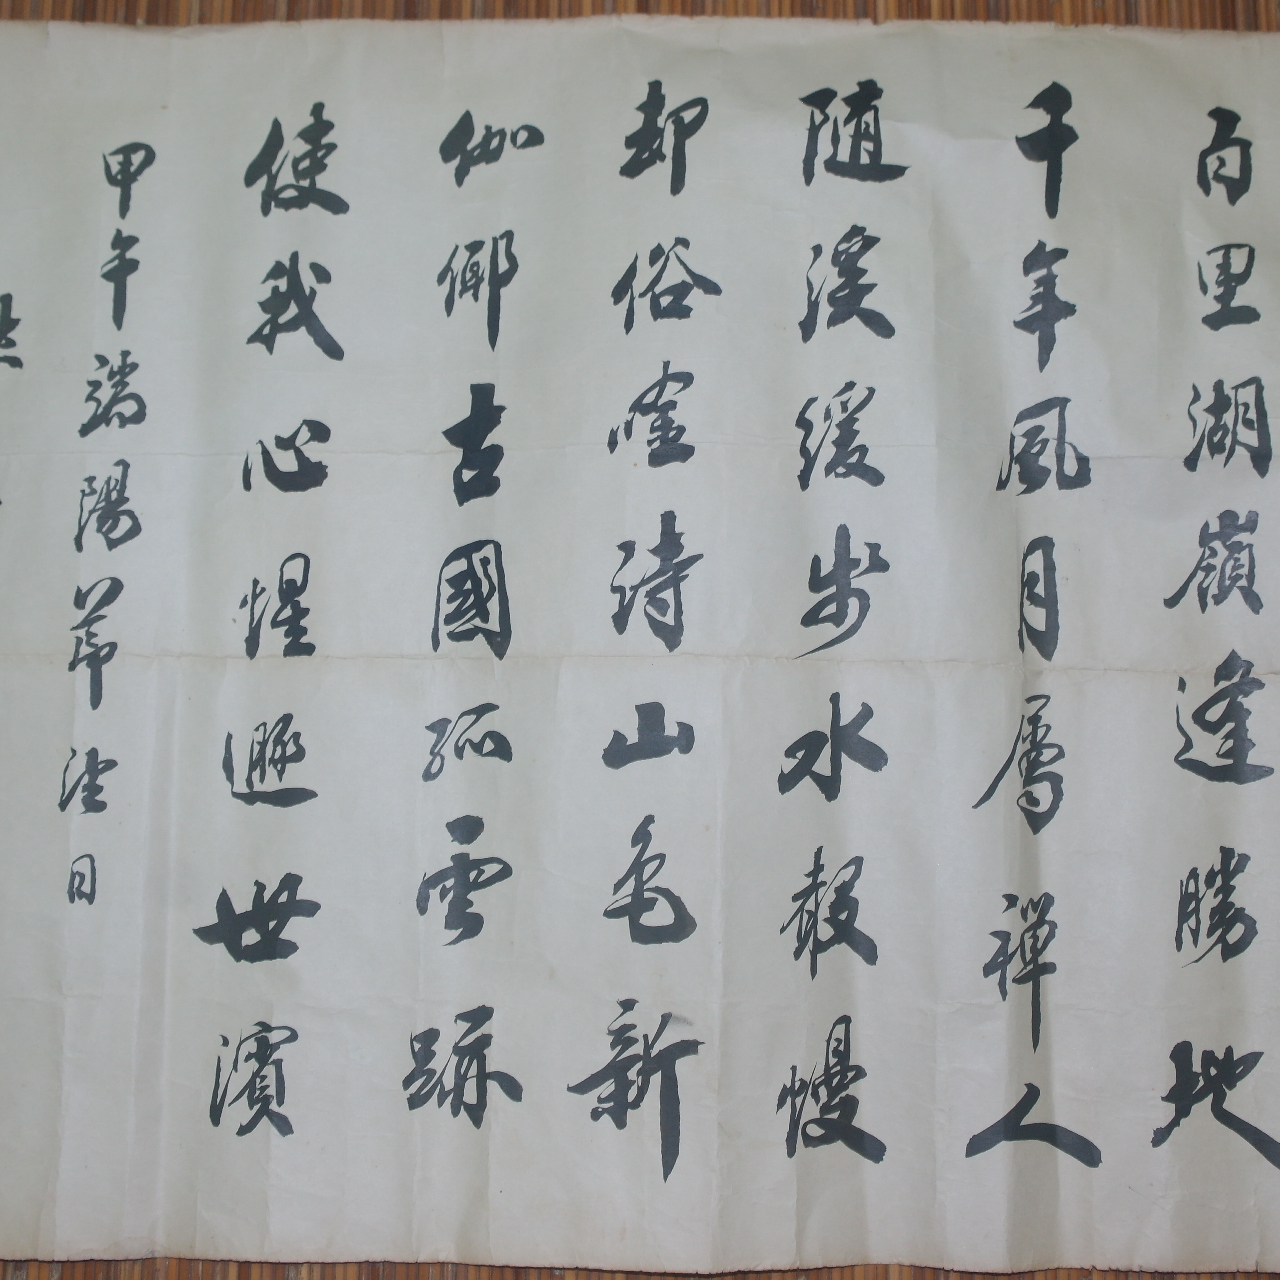 百里湖嶺逢勝地
千年風月屬禪人
随溪緩步水聲慢
却俗唫詩山色新
伽倻古國孤雲跡
使我心惺遯世濱
甲午端陽節日